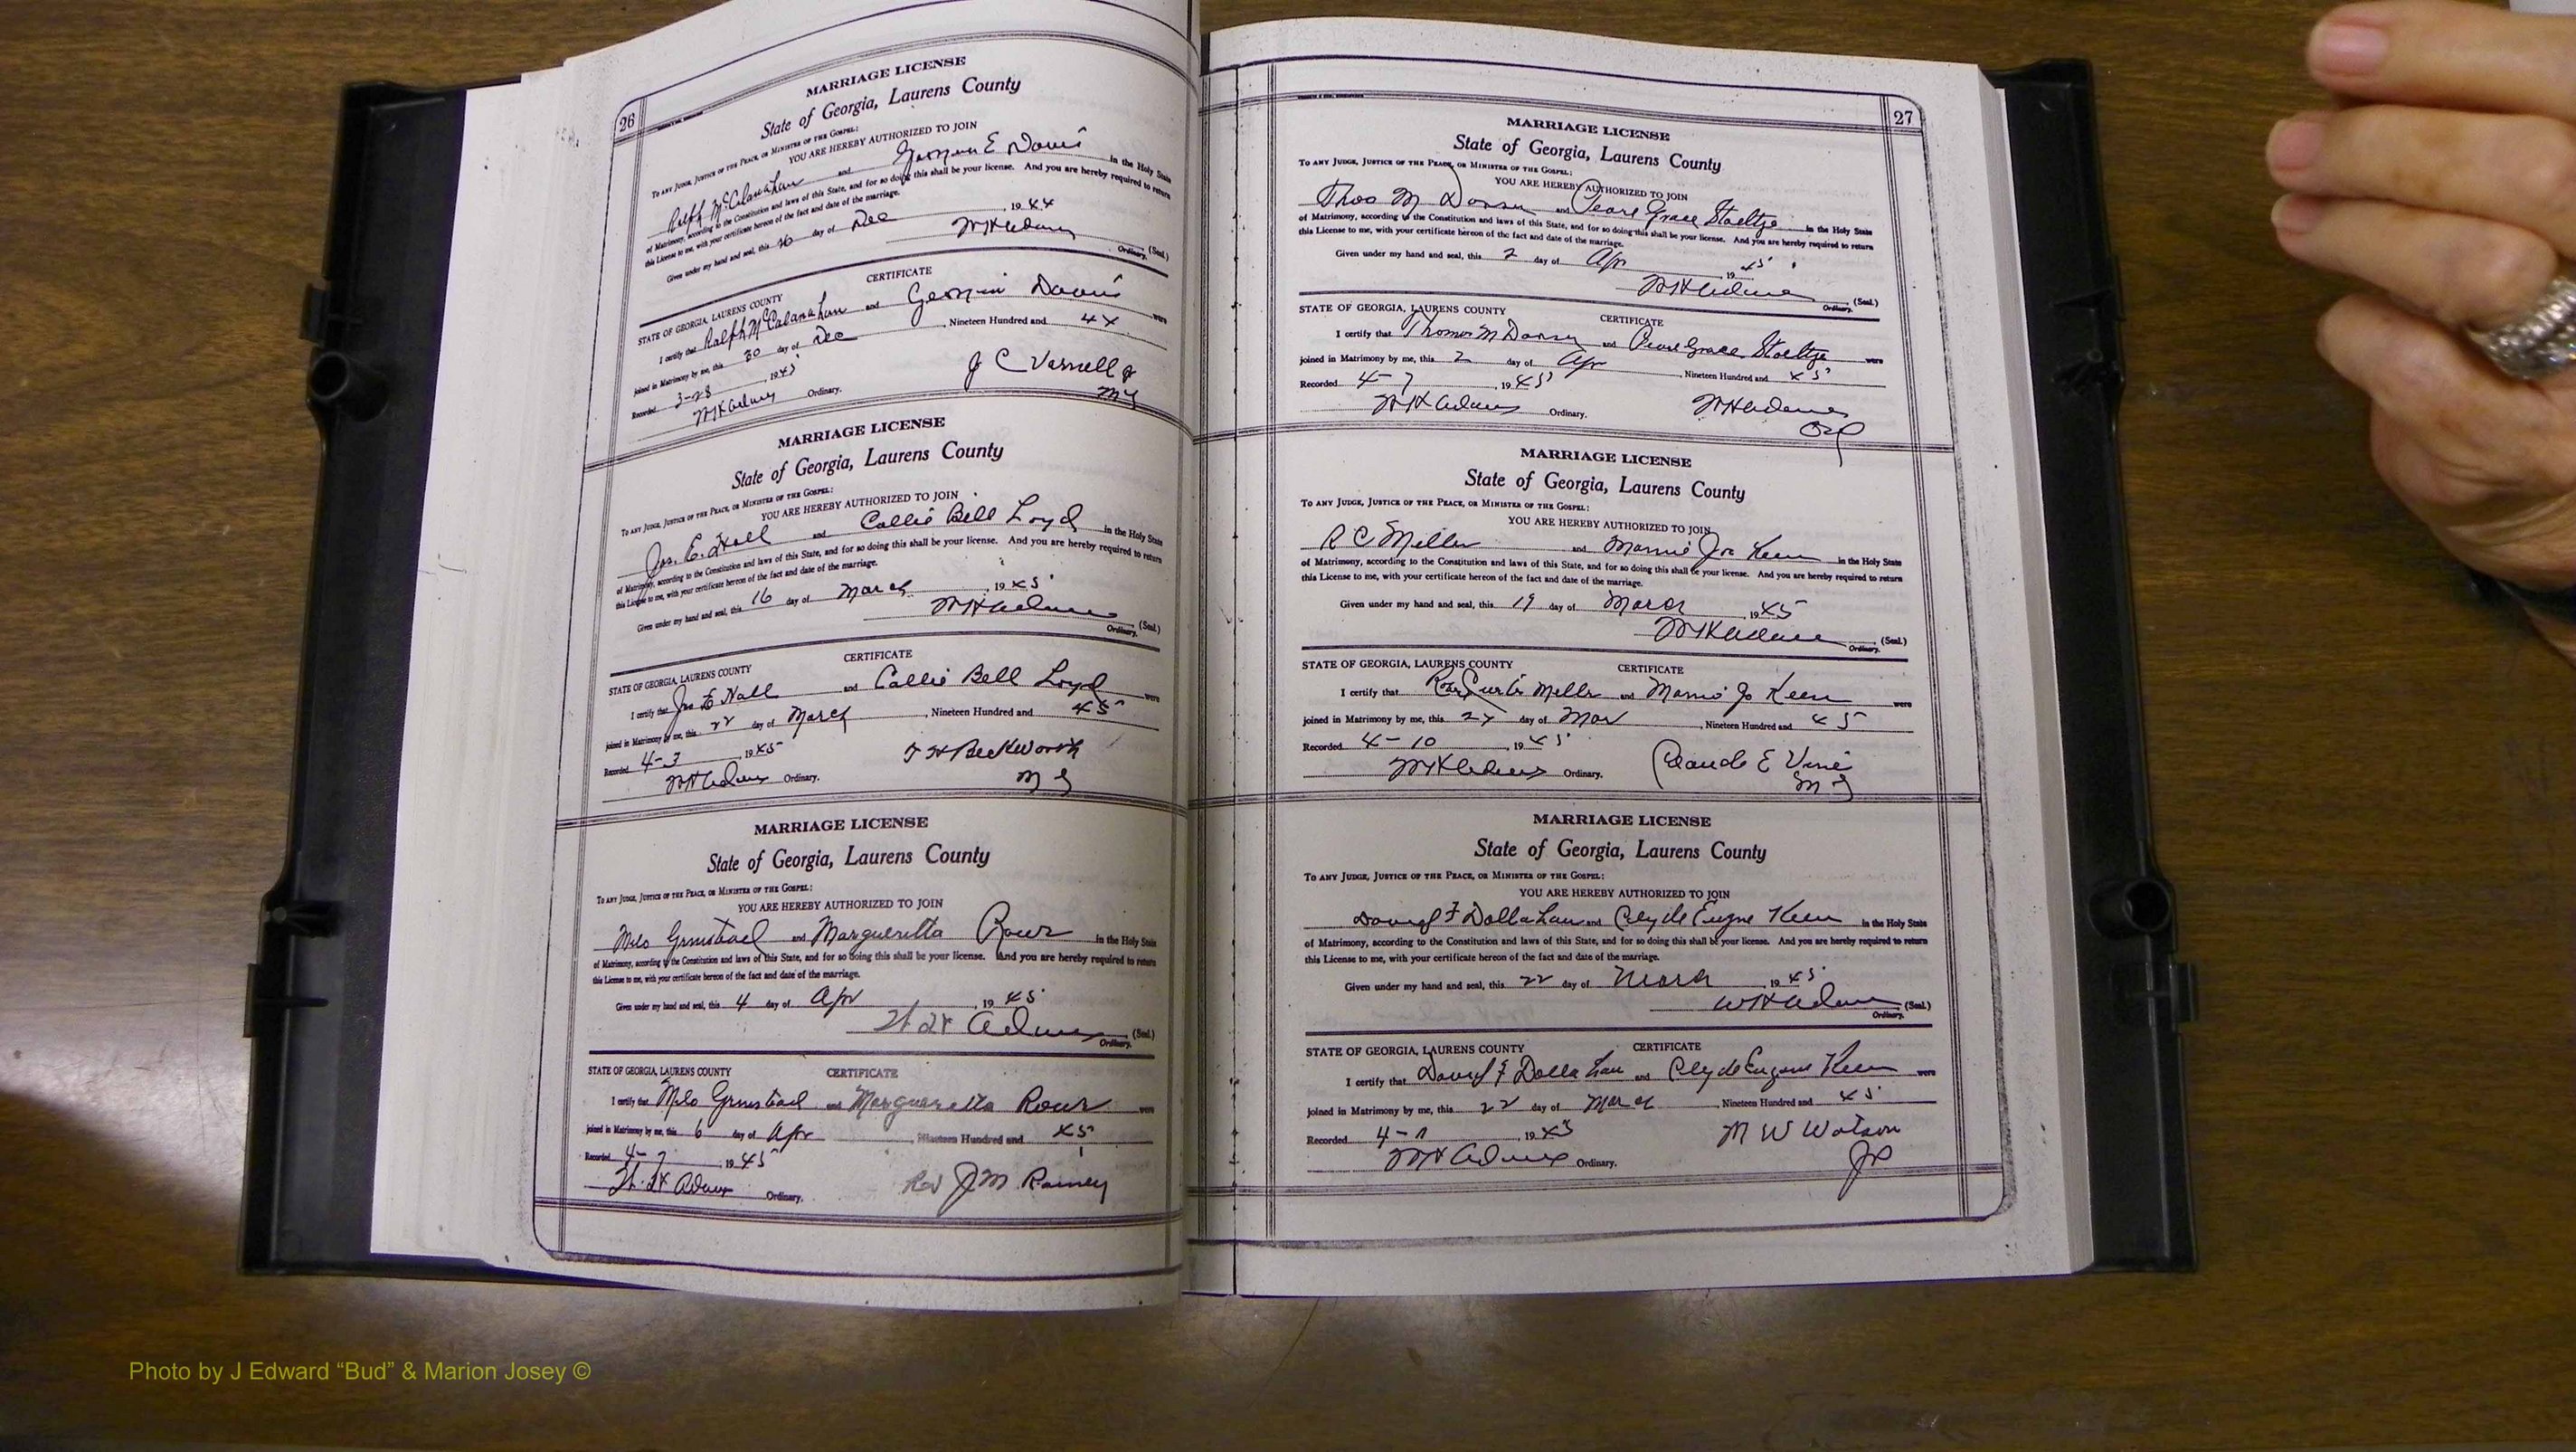 26
MARRIAGE LICENSE
State of Georgia, Laurens County
TO ANY JUDGE, JUSTICE OF THE PEACE, OR MINISTER OF THE GOSPEL:
YOU ARE HEREBY AUTHORIZED TO JOIN
Ralph McClanahan and E Davis in the Holy State
of Matrimony, according to the Constitution and laws of this State, and for so doing this shall be your license. And you are hereby required to return
this License to me, with your certificate hereon of the fact and date of the marriage.
Given under my hand and seal, this day of Dec 1944
W H Adams (Seal.)
Ordinary.
CERTIFICATE
STATE OF GEORGIA, LAURENS COUNTY
I certify that Ralph McCalanahan and Davis were
joined in Matrimony by me, this 30 day of Dec , Nineteen Hundred and 44
Recorded 3-28 , 1945
W H Adams Ordinary.
J C Varnell Jr
MG
MARRIAGE LICENSE
State of Georgia, Laurens County
TO ANY JUDGE, JUSTICE OF THE PEACE, OR MINISTER OF THE GOSPEL:
YOU ARE HEREBY AUTHORIZED TO JOIN
Jas. E. Hall and Callie Bell Loyd in the Holy State
of Matrimony, according to the Constitution and laws of this State, and for so doing this shall be your license. And you are hereby required to return
this License to me, with your certificate hereon of the fact and date of the marriage.
Given under my hand and seal, this 16 day of March , 1945
W H Adams (Seal.)
Ordinary.
CERTIFICATE
STATE OF GEORGIA, LAURENS COUNTY
I certify that Jas E Hall and Callie Bell Loyd were
joined in Matrimony by me, this 22 day of March , Nineteen Hundred and 45
Recorded 4-3 , 1945
W H Adams Ordinary.
T H Beckworth
M G
MARRIAGE LICENSE
State of Georgia, Laurens County
TO ANY JUDGE, JUSTICE OF THE PEACE, OR MINISTER OF THE GOSPEL:
YOU ARE HEREBY AUTHORIZED TO JOIN
Milo and Margueretta in the Holy State
of Matrimony, according to the Constitution and laws of this State, and for so doing this shall be your license. And you are hereby required to return
this License to me, with your certificate hereon of the fact and date of the marriage.
Given under my hand and seal, this 4 day of Apr , 1945
W H Adams (Seal.)
Ordinary.
STATE OF GEORGIA, LAURENS COUNTY CERTIFICATE
I certify that Milo and Margueretta were
joined in Matrimony by me, this 6 day of Apr , Nineteen Hundred and 45
Recorded 4-7 , 1945
W. H Adams Ordinary.
Rev J M Rainey
27
MARRIAGE LICENSE
State of Georgia, Laurens County
TO ANY JUDGE, JUSTICE OF THE PEACE, OR MINISTER OF THE GOSPEL:
YOU ARE HEREBY AUTHORIZED TO JOIN
Thos M and Pearl Grace Stoeltze in the Holy State
of Matrimony, according to the Constitution and laws of this State, and for so doing this shall be your license. And you are hereby required to return
this License to me, with your certificate hereon of the fact and date of the marriage.
Given under my hand and seal, this 2 day of Apr 1945
W H Adams (Seal.)
Ordinary.
STATE OF GEORGIA, LAURENS COUNTY CERTIFICATE
I certify that Thomas M and Pearl Grace Stoeltze were
joined in Matrimony by me, this 2 day of Apr , Nineteen Hundred and 45
Recorded 4-7 , 1945
W H Adams Ordinary.
W H Adams
Ord
MARRIAGE LICENSE
State of Georgia, Laurens County
TO ANY JUDGE, JUSTICE OF THE PEACE, OR MINISTER OF THE GOSPEL:
YOU ARE HEREBY AUTHORIZED TO JOIN
R C Miller and Mamie Jo Keen in the Holy State
of Matrimony, according to the Constitution and laws of this State, and for so doing this shall be your license. And you are hereby required to return
this License to me, with your certificate hereon of the fact and date of the marriage.
Given under my hand and seal, this 19 day of March , 1945
W H Adams (Seal.)
Ordinary.
STATE OF GEORGIA, LAURENS COUNTY CERTIFICATE
I certify that Curtis Miller and Mamie Jo Keen were
joined in Matrimony by me, this 24 day of Mar , Nineteen Hundred and 45
Recorded 4-10 , 1945
W H Adams Ordinary.
Claude E Vines
M G
MARRIAGE LICENSE
State of Georgia, Laurens County
TO ANY JUDGE, JUSTICE OF THE PEACE, OR MINISTER OF THE GOSPEL:
YOU ARE HEREBY AUTHORIZED TO JOIN
F Dollahan and Clyde Eugene Keen in the Holy State
of Matrimony, according to the Constitution and laws of this State, and for so doing this shall be your license. And you are hereby required to return
this License to me, with your certificate hereon of the fact and date of the marriage.
Given under my hand and seal, this 22 day of March , 1945
W H Adams (Seal.)
Ordinary.
STATE OF GEORGIA, LAURENS COUNTY CERTIFICATE
I certify that F Dollahan and Clyde Eugene Keen were
joined in Matrimony by me, this 22 day of March , Nineteen Hundred and 45
Recorded 4-11 , 1945
W H Adams Ordinary.
M W Watson
JP
Photo by J Edward “Bud” & Marion Josey ©